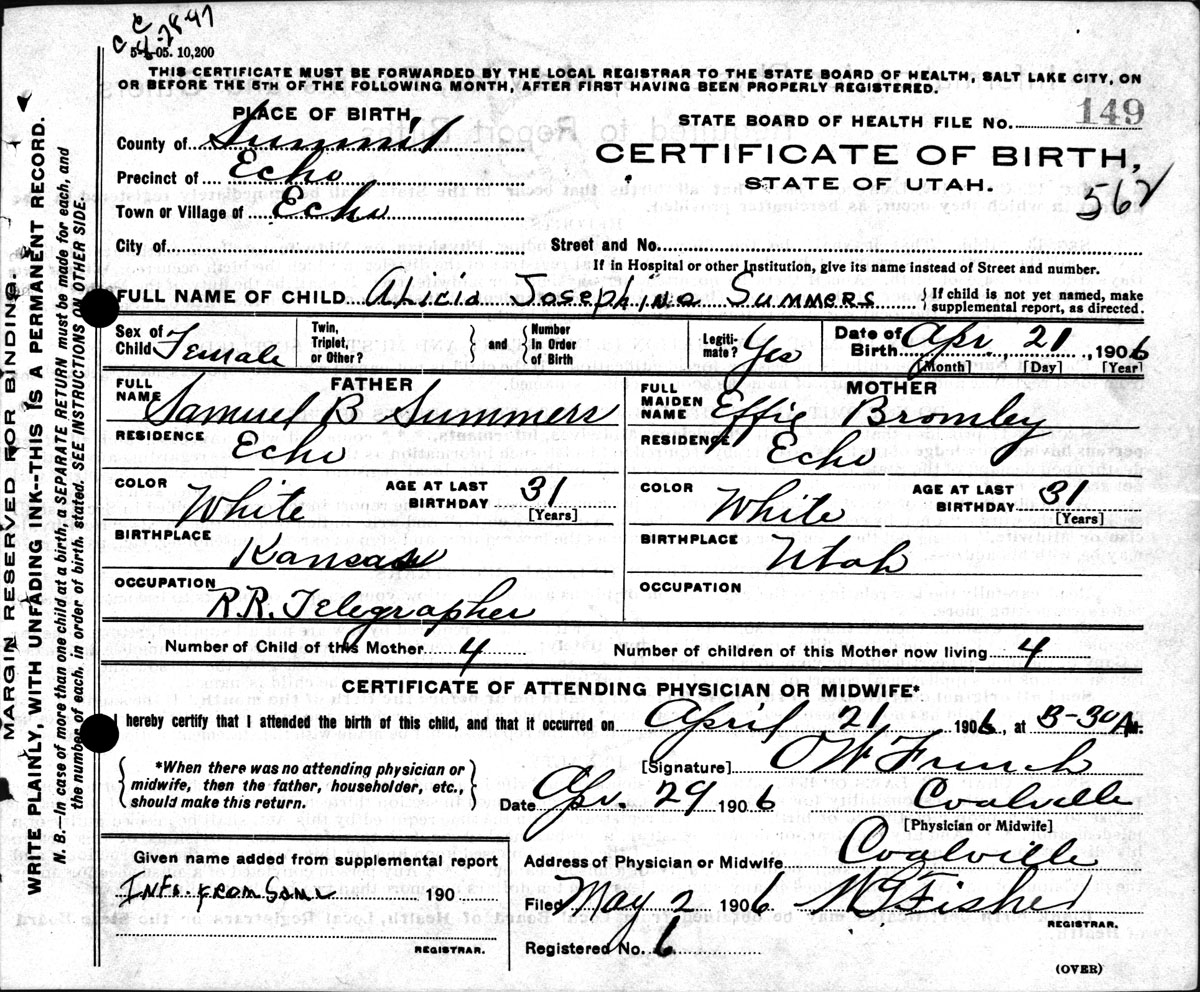 C C
4-28-47
5-5-05. 10,200
THIS CERTIFICATE MUST BE FORWARDED BY THE LOCAL REGISTRAR TO THE STATE BOARD OF HEALTH, SALT LAKE CITY, ON
OR BEFORE THE 5TH OF THE FOLLOWING MONTH, AFTER FIRST HAVING BEEN PROPERLY REGISTERED.
PLACE OF BIRTH,
STATE BOARD OF HEALTH FILE No. 149
County of Summit
CERTIFICATE OF BIRTH,
Precinct of Echo
STATE OF UTAH.
Town or Village of Echo
City of
Street and No.
If in Hospital or other Institution, give its name instead of Street and number.
FULL NAME OF CHILD Alicia Josephine Summers { If child is not yet named, make supplemental report, as directed.
Sex of Child Female
Twin, Triplet, or Other? } and { Number In Order of Birth
Legiti- mate? Yes
Date of Birth Apr. 21, 1906
[Month] [Day] [Year]
FATHER
FULL NAME Samuel B Summers
RESIDENCE Echo
COLOR White AGE AT LAST BIRTHDAY 31 [Years]
BIRTHPLACE Kansas
OCCUPATION R.R. Telegrapher
MOTHER
FULL MAIDEN NAME Effie Bromley
RESIDENCE Echo
COLOR White AGE AT LAST BIRTHDAY 31 [Years]
BIRTHPLACE Utah
OCCUPATION
Number of Child of this Mother 4 Number of children of this Mother now living 4
CERTIFICATE OF ATTENDING PHYSICIAN OR MIDWIFE*
I hereby certify that I attended the birth of this child, and that it occurred on April 21 1906, at 3-30 A M.
{ *When there was no attending physician or midwife, then the father, householder, etc., should make this return. }
[Signature] O W French
Date Apr. 29 1906 Coalville
[Physician or Midwife]
Given name added from supplemental report
Info. from Same 190
REGISTRAR.
Address of Physician or Midwife Coalville
Filed May 2 1906 W G Fisher
REGISTRAR.
Registered No. 6
(OVER)
MARGIN RESERVED FOR BINDING
WRITE PLAINLY, WITH UNFADING INK--THIS IS A PERMANENT RECORD.
N. B.—In case of more than one child at a birth, a SEPARATE RETURN must be made for each, and
the number of each, in order of birth, stated. SEE INSTRUCTIONS ON OTHER SIDE.